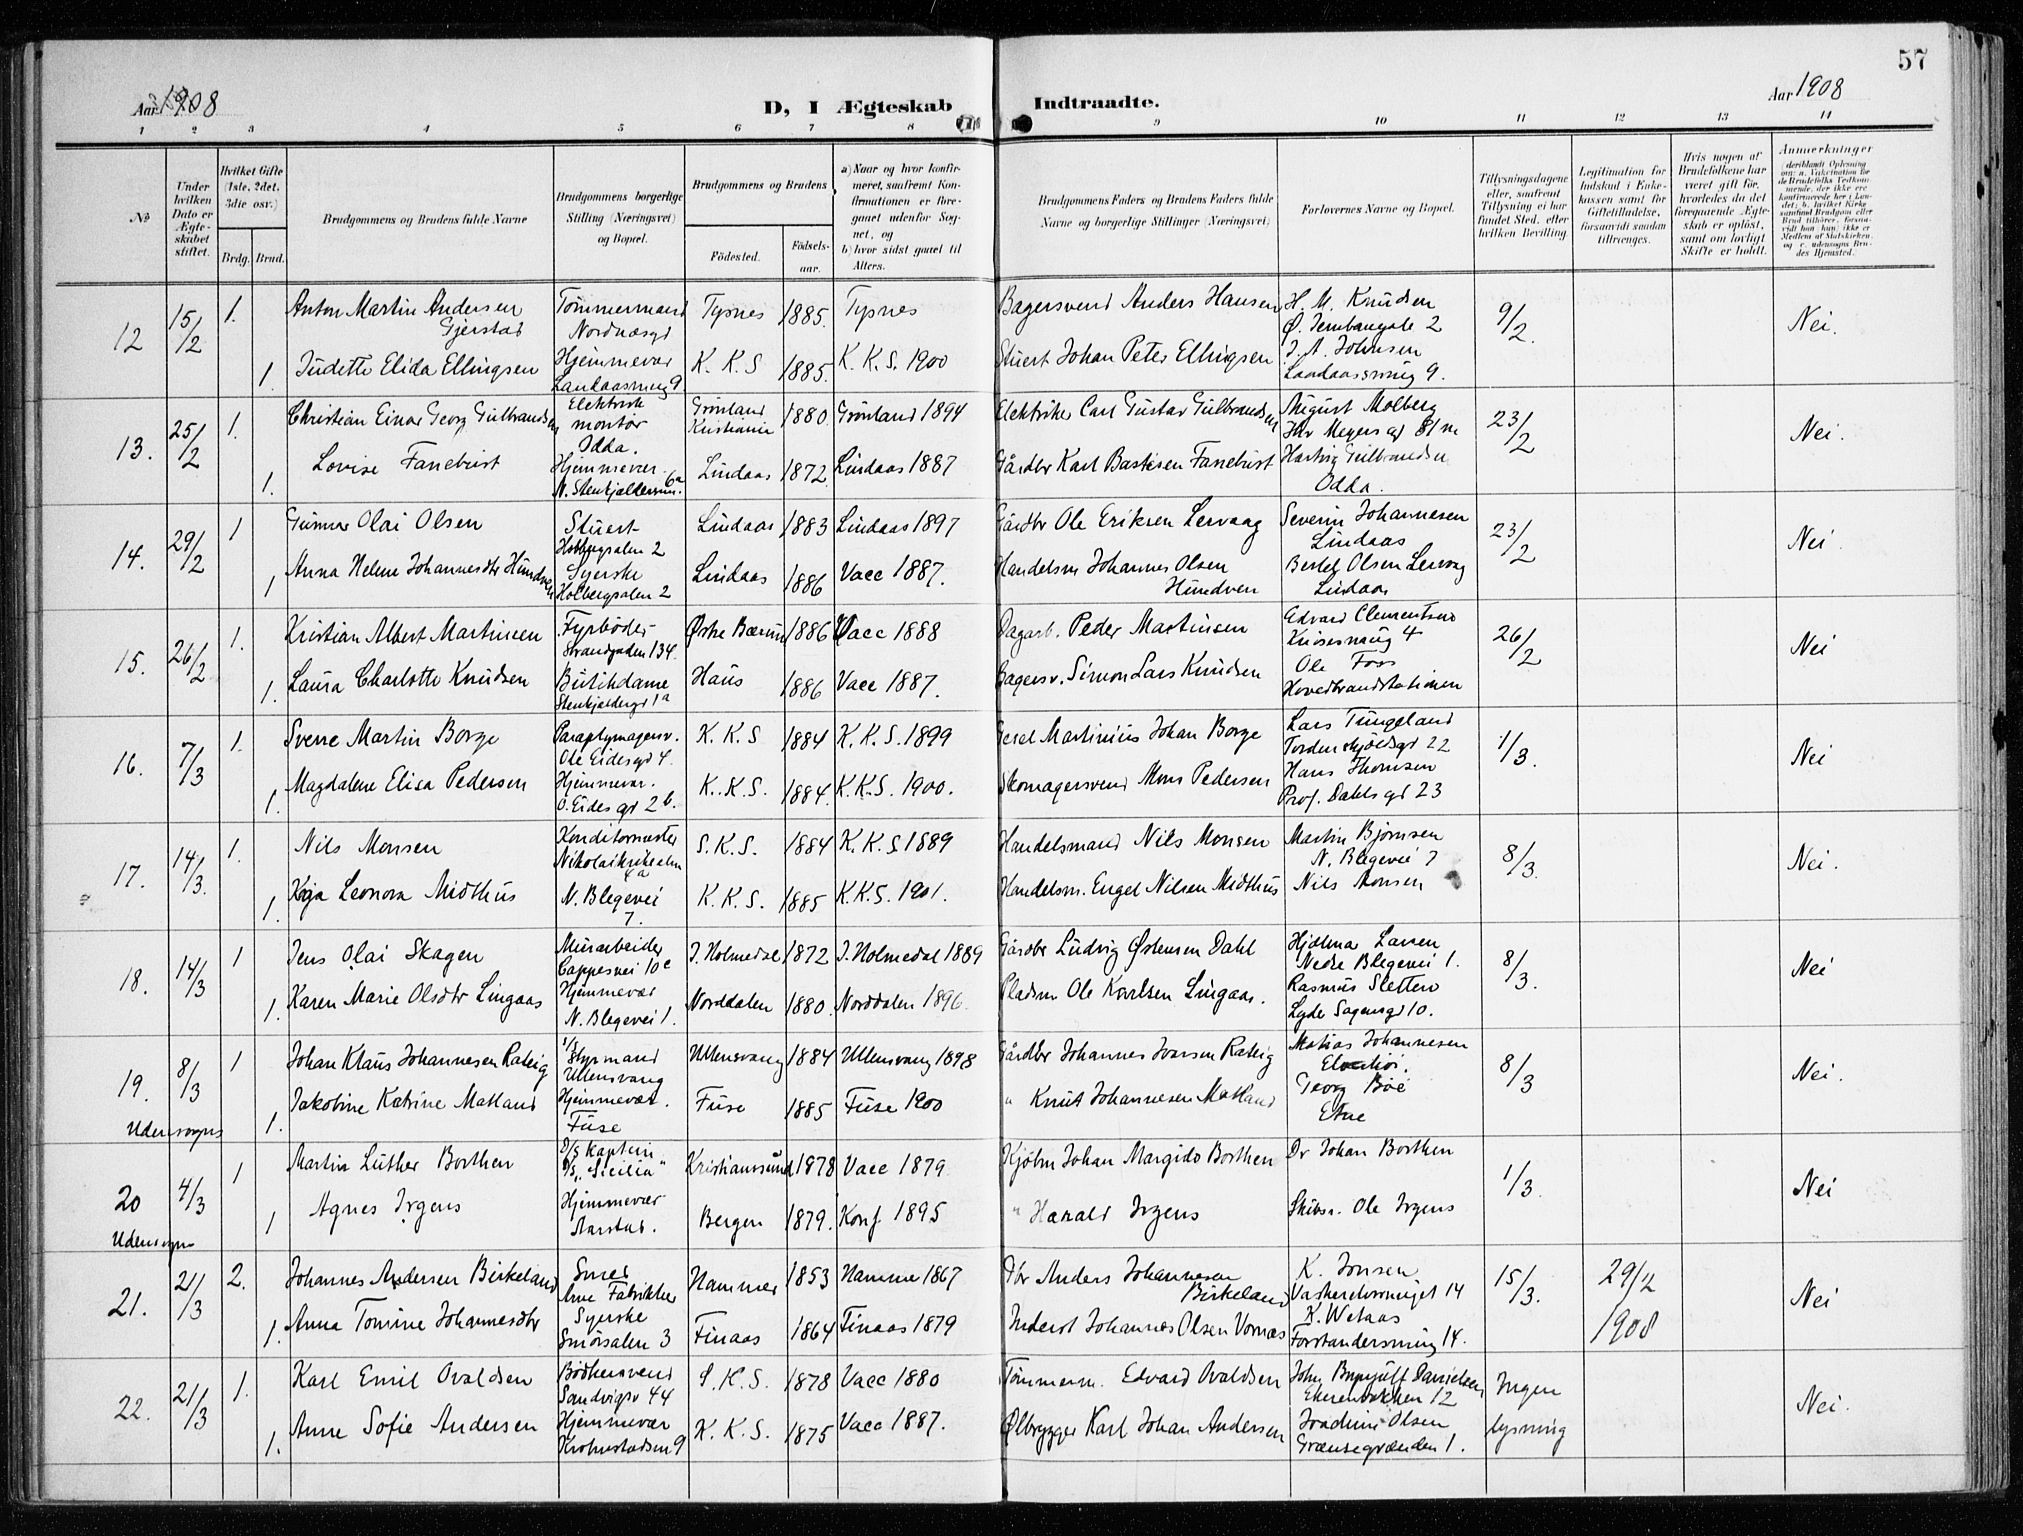 57
Aar 1908
D, I Ægteskab Indtraadte.
Aar 1908
1 2 3 4 5 6 7 8 9 10 11 12 13 14
No
Under hvilken Dato er Ægteskabet stiftet.
Hvilket Gifte (1ste, 2det, 3die osv.)
Brdg. Brud.
Brudgommens og Brudens fulde Navne
Brudgommens borgerlige Stilling (Næringsvei) og Bopæl.
Brudgommens og Brudens
Fødested.
Fødselsaar.
a) Naar og hvor konfirmeret, saafremt Konfirmationen er foregaaet udenfor Sognet, og
b) hvor sidst gaaet til Alters.
Brudgommens Faders og Brudens Faders fulde Navne og borgerlige Stillinger (Næringsvei)
Forlovernes Navne og Bopæl.
Tillysningsdagene eller, saafremt Tillysning ei har fundet Sted, efter hvilken Bevilling
Legitimation for Indskud i Enkekassen samt for Giftetilladelse, forsaavidt saadan tiltrænges.
Hvis nogen af Brudefolkene har været gift før, hvorledes da det foregaaende Ægteskab er opløst, samt om lovligt Skifte er holdt.
Anmærkninger
12 15/2 1. Anton Martin Andersen Gjerstad Tømmermand Nordnæsgd Tysnes 1885. Tysnes Bagersvend Anders Hansen H. M. Knudsen Ø. Jernbangate 2 9/2. Nei.
1. Judette Elida Ellingsen Hjemmevær Landaasveug 9 K. K. S 1885. K. K. S. 1900 Stuert Johan Peter Ellingsen J. A. Johnsen Landaassmug 9.
13. 25/2 1. Christian Einar Georg Gulbrandsen Elektrisk montør Odda. Grønland Kristiania 1880. Grønland 1894 Elektriker Carl Gustav Gulbrandsen August Molberg 23/2 Nei.
1. Lovise Fanebust Hjemmevær. N. Stenkjeldersm. 6a Lindaas 1872 Lindaas 1887 Gårdbr Karl Bastesen Fanebust Hartvig Gulbrandsen Odda.
14. 29/2 1 Gunnar Olai Olsen Stuert Holbergsalm 2 Lindaas 1883 Lindaas 1897 Gårdbr Ole Eriksen Lervaag Severin Johannesen Lindaas 23/2 Nei
1 Anna Helene Johannesdtr Hundven Syerske Holbergsalm 2 Lindaas 1886 Vacc 1887. Handelsm Johannes Olsen Hundven Bertel Olsen Lervåg Lindaas
15. 26/2 1. Kristian Albert Martinsen Fyrbøder Strandgaden 134. Østre Bærum 1886 Vacc 1888 Dagarb. Peder Martinsen Edvard Clementsen 26/2 Nei
1. Laura Charlotte Knudsen Butikdame Stenkjeldergd 1a Haus 1886 Vacc 1887. Bagersv. Simon Lars Knudsen Ole Foss Hovedbrandstationen
16. 7/3 1. Sverre Martin Borge Paraplymagersv. Ole Eidesgd 4. K. K. S 1884 K. K. S. 1899 Gesel Martinius Johan Borge Lars Tungeland Tordenskjoldsgd 22 1/3. Nei
1. Magdalene Elisa Pedersen Hjemmevær. O. Eides gd 2b. K. K. S. 1884. K. K. S. 1900. Skomagersvend Mons Pedersen Hans Thomsen Prof. Dahls gd 23
17. 14/3. 1. Nils Monsen Konditormester Nikolaikirkealm 4a S. K. S. 1884 K. K. S 1889 Handelsmand Nils Monsen Martin Bjørnsen N. Blegevei 7 8/3. Nei.
1. Kaja Leonora Midthus N. Blegevei 7. K. K. S. 1885 K. K. S. 1901. Handelsm. Engel Nilsen Midthus Nils Monsen
18. 14/3 1 Jens Olai Skagen Murarbeider Cappesvei 10c I. Holmedal 1872 I. Holmedal 1889 Gårdbr Ludvig Østensen Dahl Hjelmar Larsen Nedre Blegevei 1. 8/3. Nei
1. Karen Marie Olsdtr Lingaas Hjemmevær N. Blegevei 1. Norddalen 1880. Norddalen 1896. Pladsm Ole Karlsen Lingaas. Rasmus Sletten Lyder Sagensgd 10.
19. 8/3 1 Johan Klaus Johannesen Råteig Styrmand Ullensvang Ullensvang 1884 Ullensvang 1898 Gårdbr Johannes Ivarsen Råteig Matias Johannesen 8/3 Nei.
Udensogns 1. Jakobine Katrine Matland Hjemmevær. Fuse Fuse 1885 Fuse 1900 " Knut Johannesen Matland Georg Bøe Etne
20 4/3 1 Martin Luther Borthen D/S Kaptein D/S "Sicilia" Kristianssund 1878 Vacc 1879. Kjøbm Johan Margido Borthen Dr Johan Borthen 1/3. Nei
Udensogns 1 Agnes Irgens Hjemmevær Aarstad. Bergen 1879. Konf 1895 " Harald Irgens Skibsr. Ole Irgens
21. 21/3 2. Johannes Andersen Birkeland Smed Arne Fabrikker Hammer 1853 Hammer 1867 Gbr Anders Johannesen Birkeland K. Jonsen 14 15/3. 29/2 1908 Nei
1. Anna Tomine Johannesdtr Syerske Smørsalm 3 Finaas 1864 Finaas 1879 Inderst Johannes Olsen Vornæs K. Wetaas Forstandersmug 14.
22. 21/3 1. Karl Emil Ovaldsen Bødkersvend Sandvigsv 44 S. K. S. 1878 Vacc 1880 Tømmerm. Edvard Ovaldsen John Brynjulf Danielsen 12 Ingen lysning Nei.
1. Anne Sofie Andersen Hjemmevær 9 K. K. S. 1875 Vacc 1887. Ølbrygger Karl Johan Andersen Joachim Olsen Grænsegrænden 1.